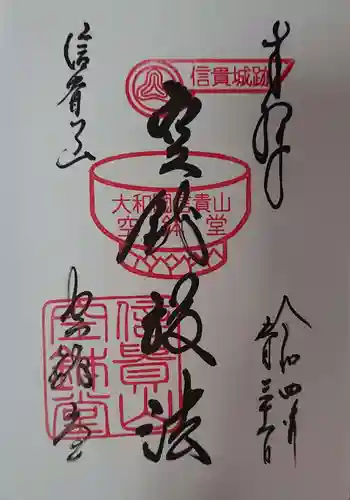 奉拝
令和四年
信貴城跡
空鉢護法
大和国信貴山
空鉢堂
信貴山
空鉢堂
信貴山
空鉢堂